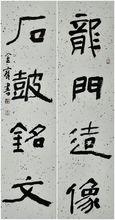 龍門造像
石鼓銘文